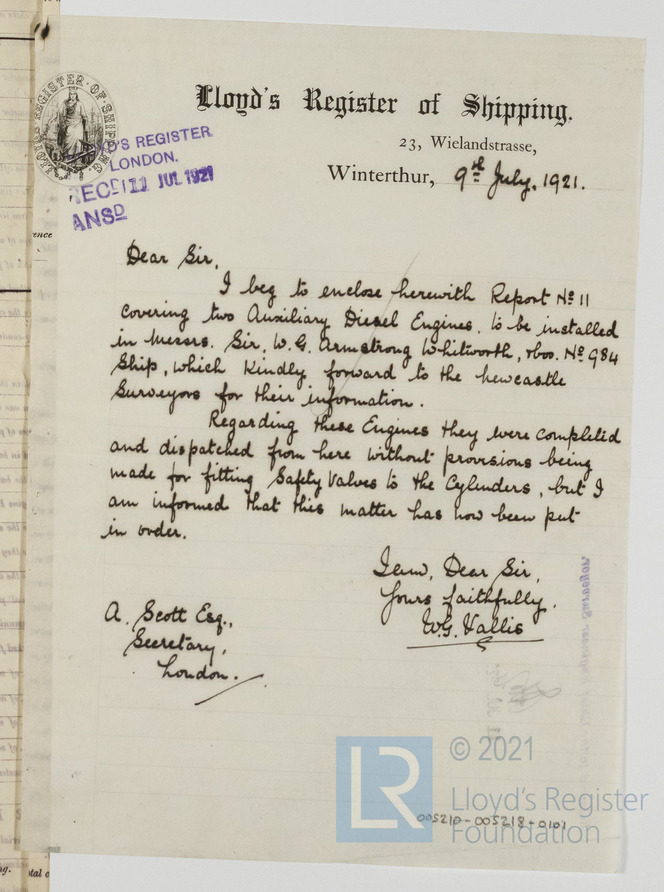 Lloyd's Register of Shipping.
23, Wielandstrasse,
Winterthur, 9th July, 1921.
LLOYD'S REGISTER OF SHIPPING
D'S REGISTER
LONDON.
REC'D 11 JUL 1921
ANSD
Dear Sir,
I beg to enclose herewith Report No 11
covering two Auxiliary Diesel Engines, to be installed
in Messrs. Sir. W. G. Armstrong Whitworth, & Co. No 984
Ship, which kindly forward to the Newcastle
Surveyors for their information.
Regarding these Engines they were completed
and dispatched from here without provisions being
made for fitting Safety Valves to the Cylinders, but I
am informed that this matter has now been put
in order.
I am, Dear Sir,
Yours faithfully,
W.G. Vallis
A. Scott Esq.,
Secretary,
London.
LR
© 2021
Lloyd's Register
Foundation
005210-005218-0101
ence